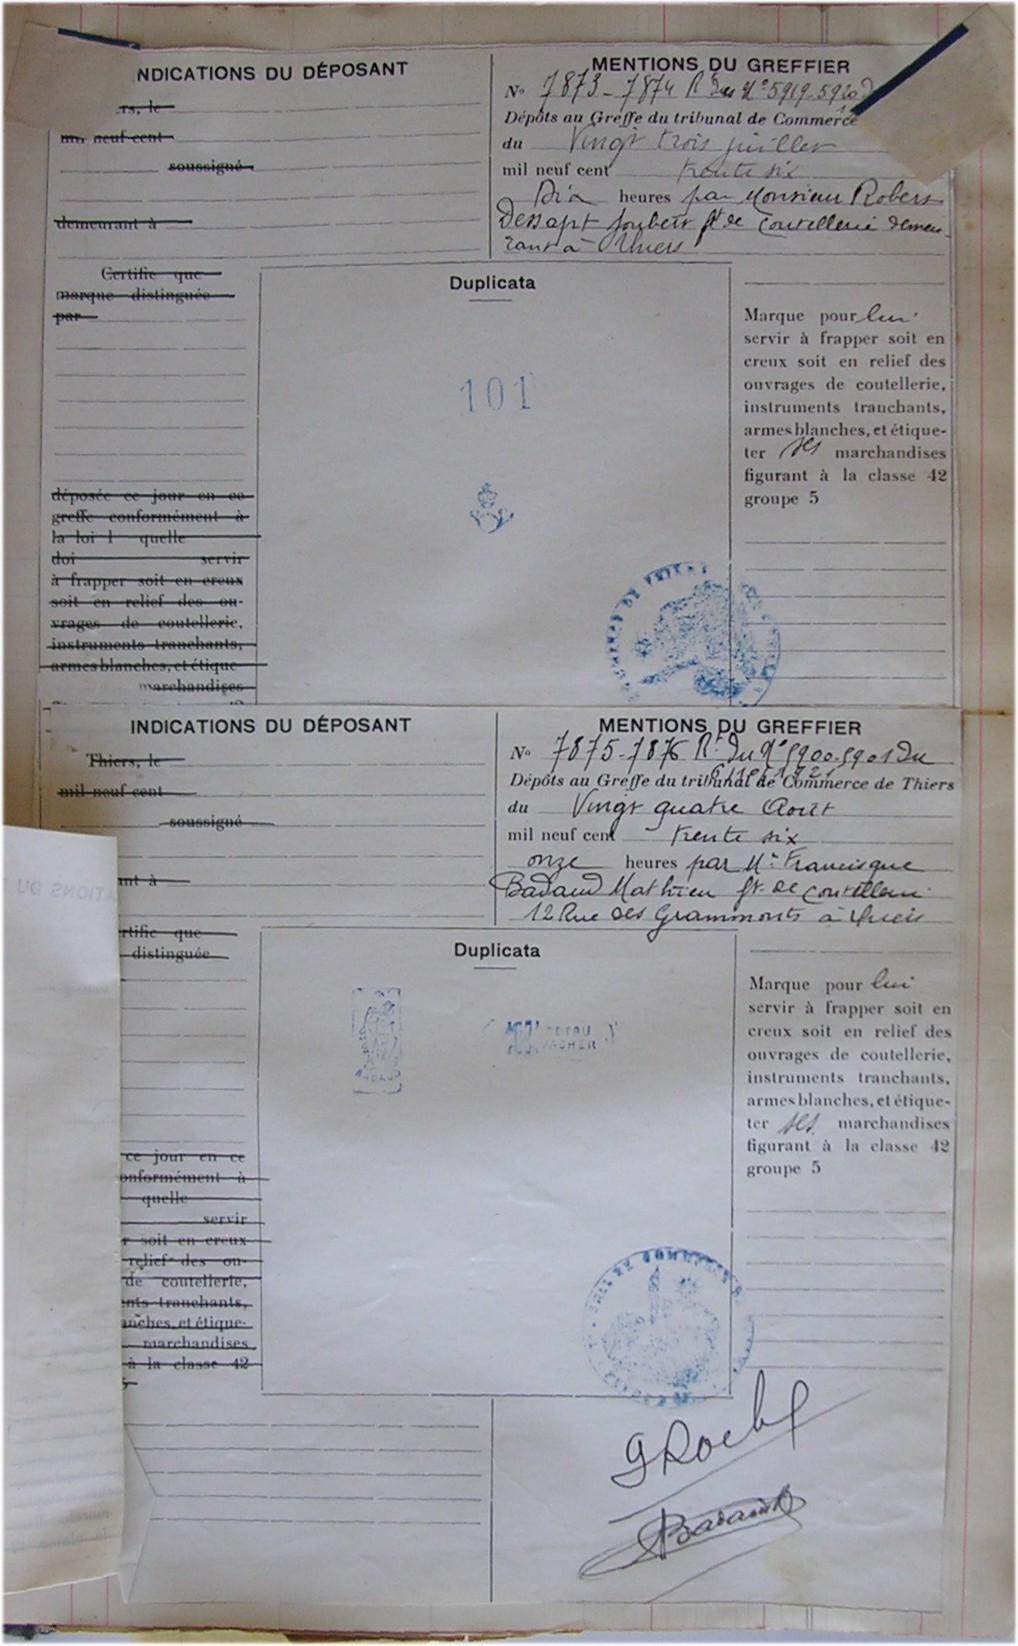 INDICATIONS DU DÉPOSANT
rs, le
mil neuf cent
soussigné
demeurant à
Certifie que
marque distinguée
par
déposée ce jour en ce
greffe conformément à
la loi l quelle
doi servir
à frapper soit en creux
soit en relief des ou-
vrages de coutellerie,
instruments tranchants,
armes blanches, et étique-
marchandises
MENTIONS DU GREFFIER
No 7873-7874 Rt du No 5919-5920
Dépôts au Greffe du tribunal de Commerce
du Vingt trois juillet
mil neuf cent trente six
Dix heures par Monsieur Robert
Dessapt Joubert ft de Coutellerie demeu-
rant à Thiers
Duplicata
101
Marque pour lui
servir à frapper soit en
creux soit en relief des
ouvrages de coutellerie,
instruments tranchants,
armes blanches, et étique-
ter ses marchandises
figurant à la classe 42
groupe 5
INDICATIONS DU DÉPOSANT
Thiers, le
mil neuf cent
soussigné
nt à
rtifie que
distinguée
ce jour en ce
onformément à
quelle
servir
r soit en creux
relief des ou-
de coutellerie,
nts tranchants,
anches, et étique-
marchandises
à la classe 42
MENTIONS DU GREFFIER
No 7875-7876 Rt du No 5900-5901 Du
Dépôts au Greffe du tribunal de Commerce de Thiers
du Vingt quatre Août
mil neuf cent trente six
onze heures par Mr Francisque
Badaud Mathieu ft de Coutellerie
12 Rue des Grammonts à Thiers
Duplicata
BADAUD
VACHER
Marque pour lui
servir à frapper soit en
creux soit en relief des
ouvrages de coutellerie,
instruments tranchants,
armes blanches, et étique-
ter ses marchandises
figurant à la classe 42
groupe 5
Badaud